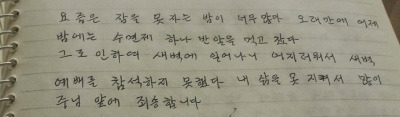 요즘은 잠을 못자는 밤이 너무 많다 오래만에 어제
밤에는 수면제 하나 반알을 먹고 잤다
그로 인하여 새벽에 일어나니 어지러워서 새벽
예배를 참석하지 못했다 내 삶을 못 지켜서 많이
주님 앞에 죄송합니다